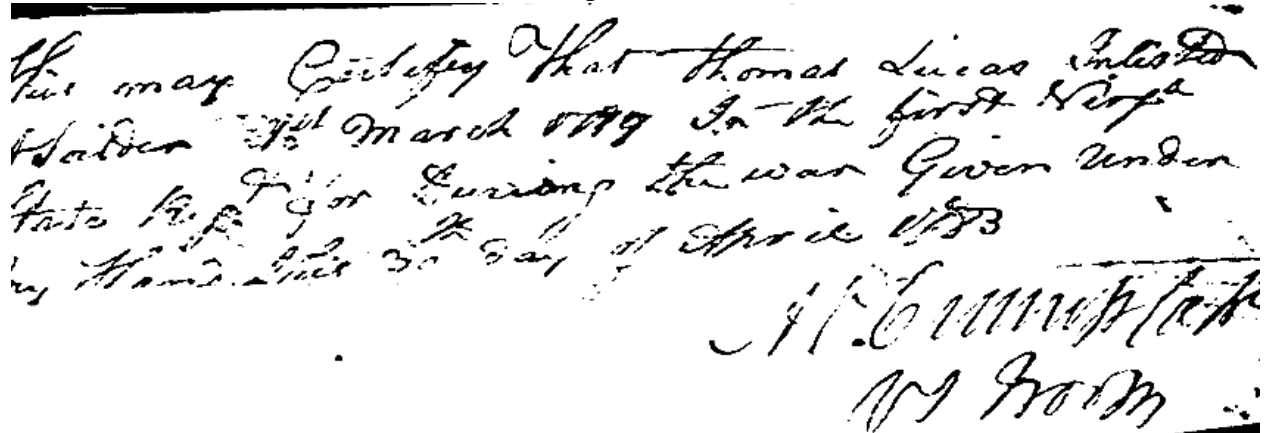 This may Certefey That Thomas Lucas Inlisted
Soilder March 1779 In the first Virga
State Regt for During the war Given under
my Hand this 30th day of April 1783